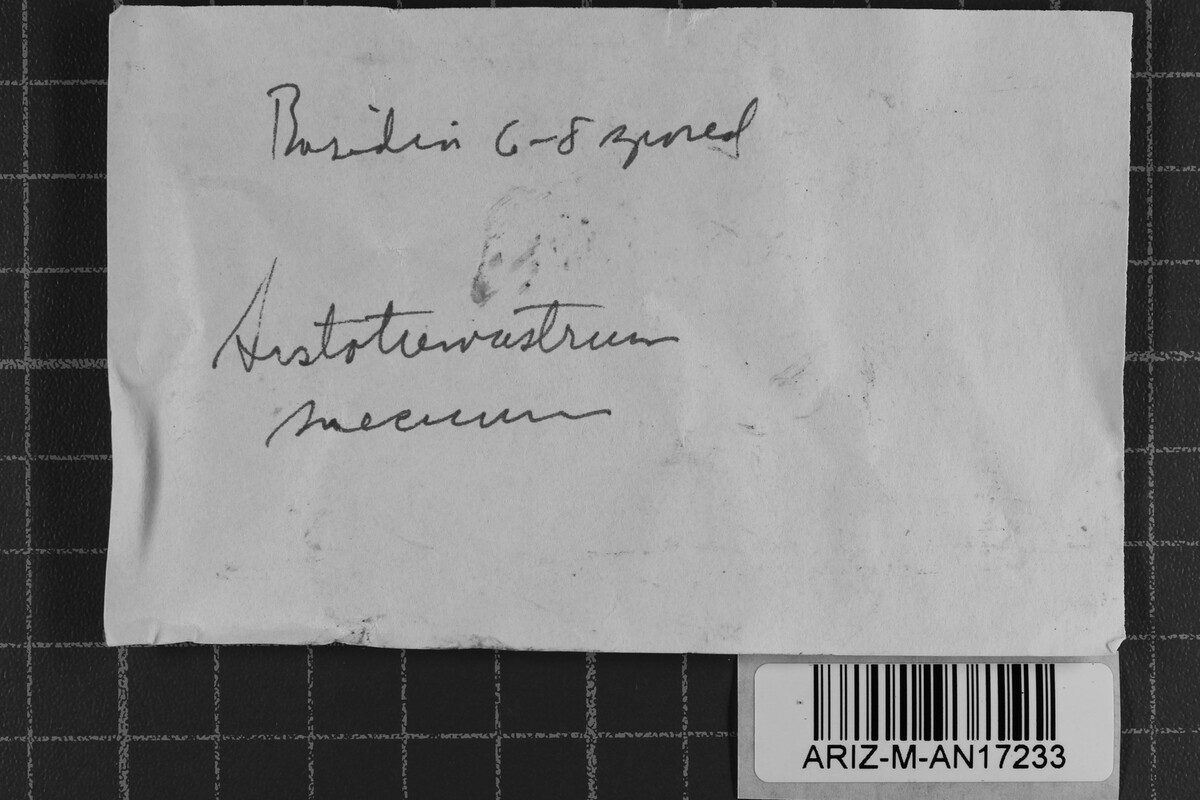 Basidia 6-8 spored
Sistotremastrum
suecicum
ARIZ-M-AN17233